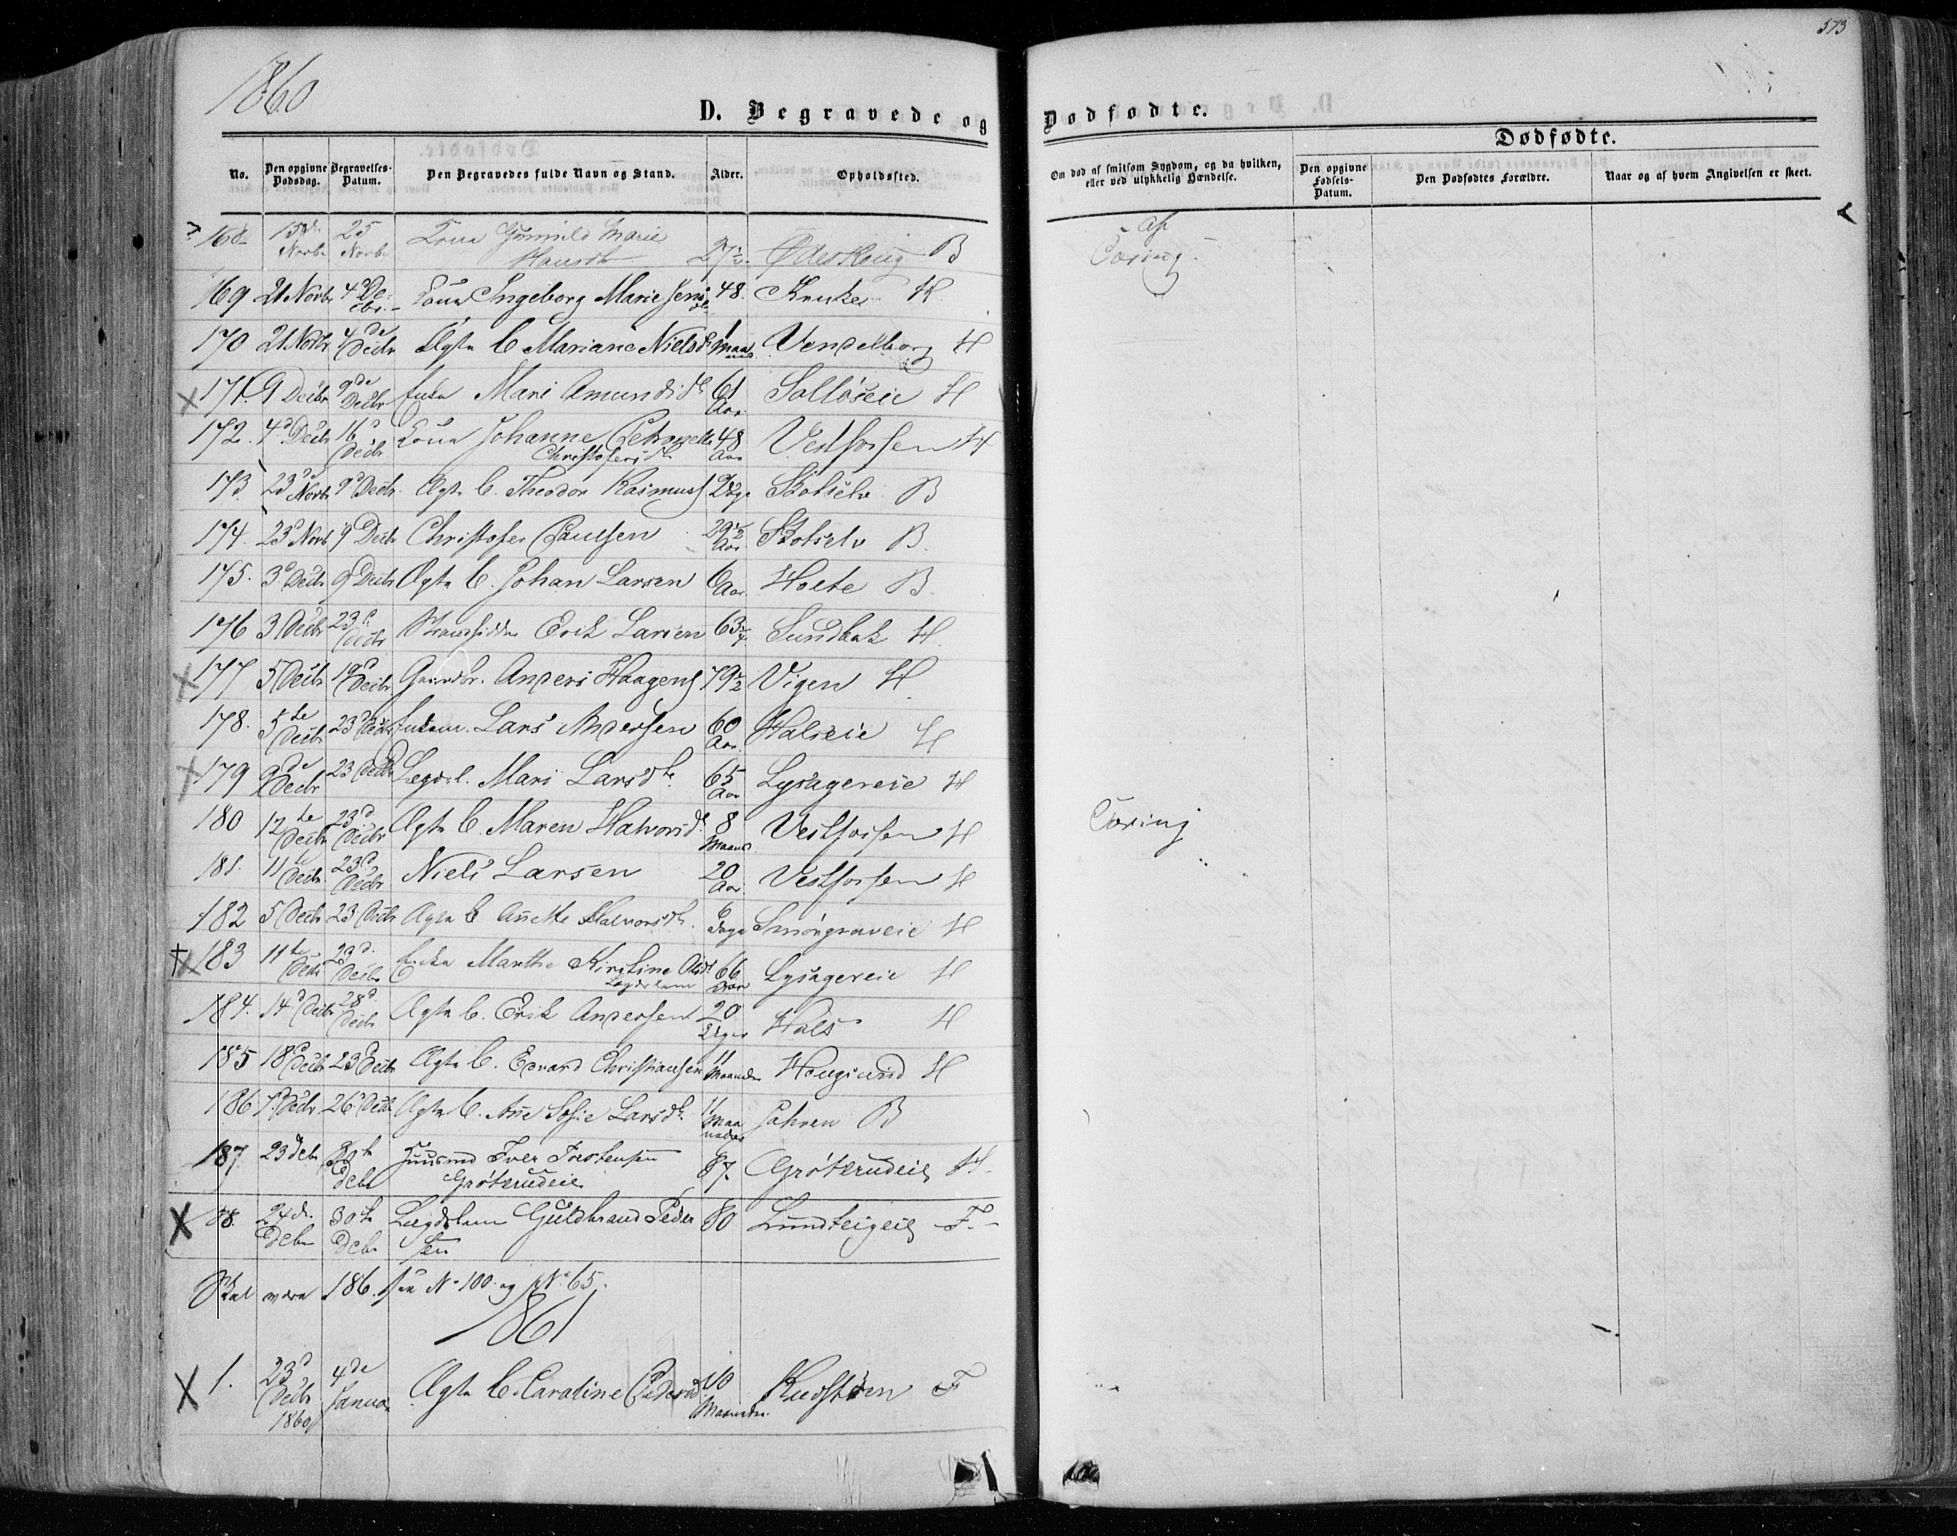 1860
573
D. Begravede og Dødfødte.
Dødfødte.
No. Den opgivne Dødsdag. Begravelses-Datum. Den Begravedes fulde Navn og Stand. Alder. Opholdssted. Om død af smitsom Sygdom, og da hvilken, eller ved ulykkelig Hændelse. Den opgivne Fødsels-Datum. Den Dødfødtes Forældre. Naar og af hvem Angivelsen er skeet.
168 15de Novbr 25 Novbr Kona Gunnild Marie Hansdtr 27½ Ødeskoug B af Tæring.
169 21 Novbr 4de Decbr. Kona Ingeborg Marie Jensdtr 48. Kruke H.
170 21 Novbr 4de Decbr Ægte B. Mariane Nielsdtr 1 Maaned Venselborg H
171. 9 Decbr 9de Decbr Enke Mari Amundsdtr 61 Aar Solløseie H
172. 4de Decbr 16d Decbr Kona Johanne Petronelle Christofersdtr 48 Aar Vestfossen H
173. 23d Novbr 9d Decbr. Ægte B. Theodor Rasmuss Skotselv B
174. 23d Novb 9 Decbr Christofer Paulsen 29½ Aar. Skotselv B.
175. 3d Decbr 9d Decbr Ægte B. Johan Larsen 6 Aar. Holte B.
176 3 Decbr 23d Decbr Erik Larsen 63 Sundbak H.
177 5 Decbr 19d Decbr Gaardbr. Anders Haagens 79½ Vigen H.
178. 5te Decbr 23d Decbr Enkem. Lars Andersen 60 Aar. Halseie H
179 9de Decbr 23 Decbr Lægdsl. Mari Larsdtr. 65 Aar Lysagereie H
180 12te Decbr 23d Decbr Ægte B. Maren Halvorsdtr. 8 Maaned Vestfossen H Tæring
181. 11te Decbr. 23d Decbr Niels Larsen 20 Aar. Vestfossen H "
182 5 Decbr 23 Decbr Ægte B Anette Halvorsdtr. 6 Dage Smørgraveie H
183 11te Decbr 23d. Decbr Enke Marthe Kirstine Olsdtr Lægdslem 66 Aar Lysagereie H
184. 14d Decbr 28d. Decbr Ægte B. Erik Andersen 20 Uger Hals H
185 18 Decbr 23 Decbr Ægte B. Edvard Christiansen 11 Maaneder Hougsund H
186 7. Decbr 26 Decbr Ægte B. Ane Sofie Larsdtr. 11 Maaneder Jahren B
187 23 Debr 30te Debr Huusmd Iver Torstensen Grøtterudeie 87. Grøtterudeie H.
188. 24de. Debr 30te Debr Lægdslem Guldbrand Pedersen 80 Lundteigeie F.
Skal være 186. see No 100. og No 65.
1861
1. 23d Decbr 1860 4de Januar Ægte B. Caroline Pedersdtr 10 Maaneder. Kudstøen F